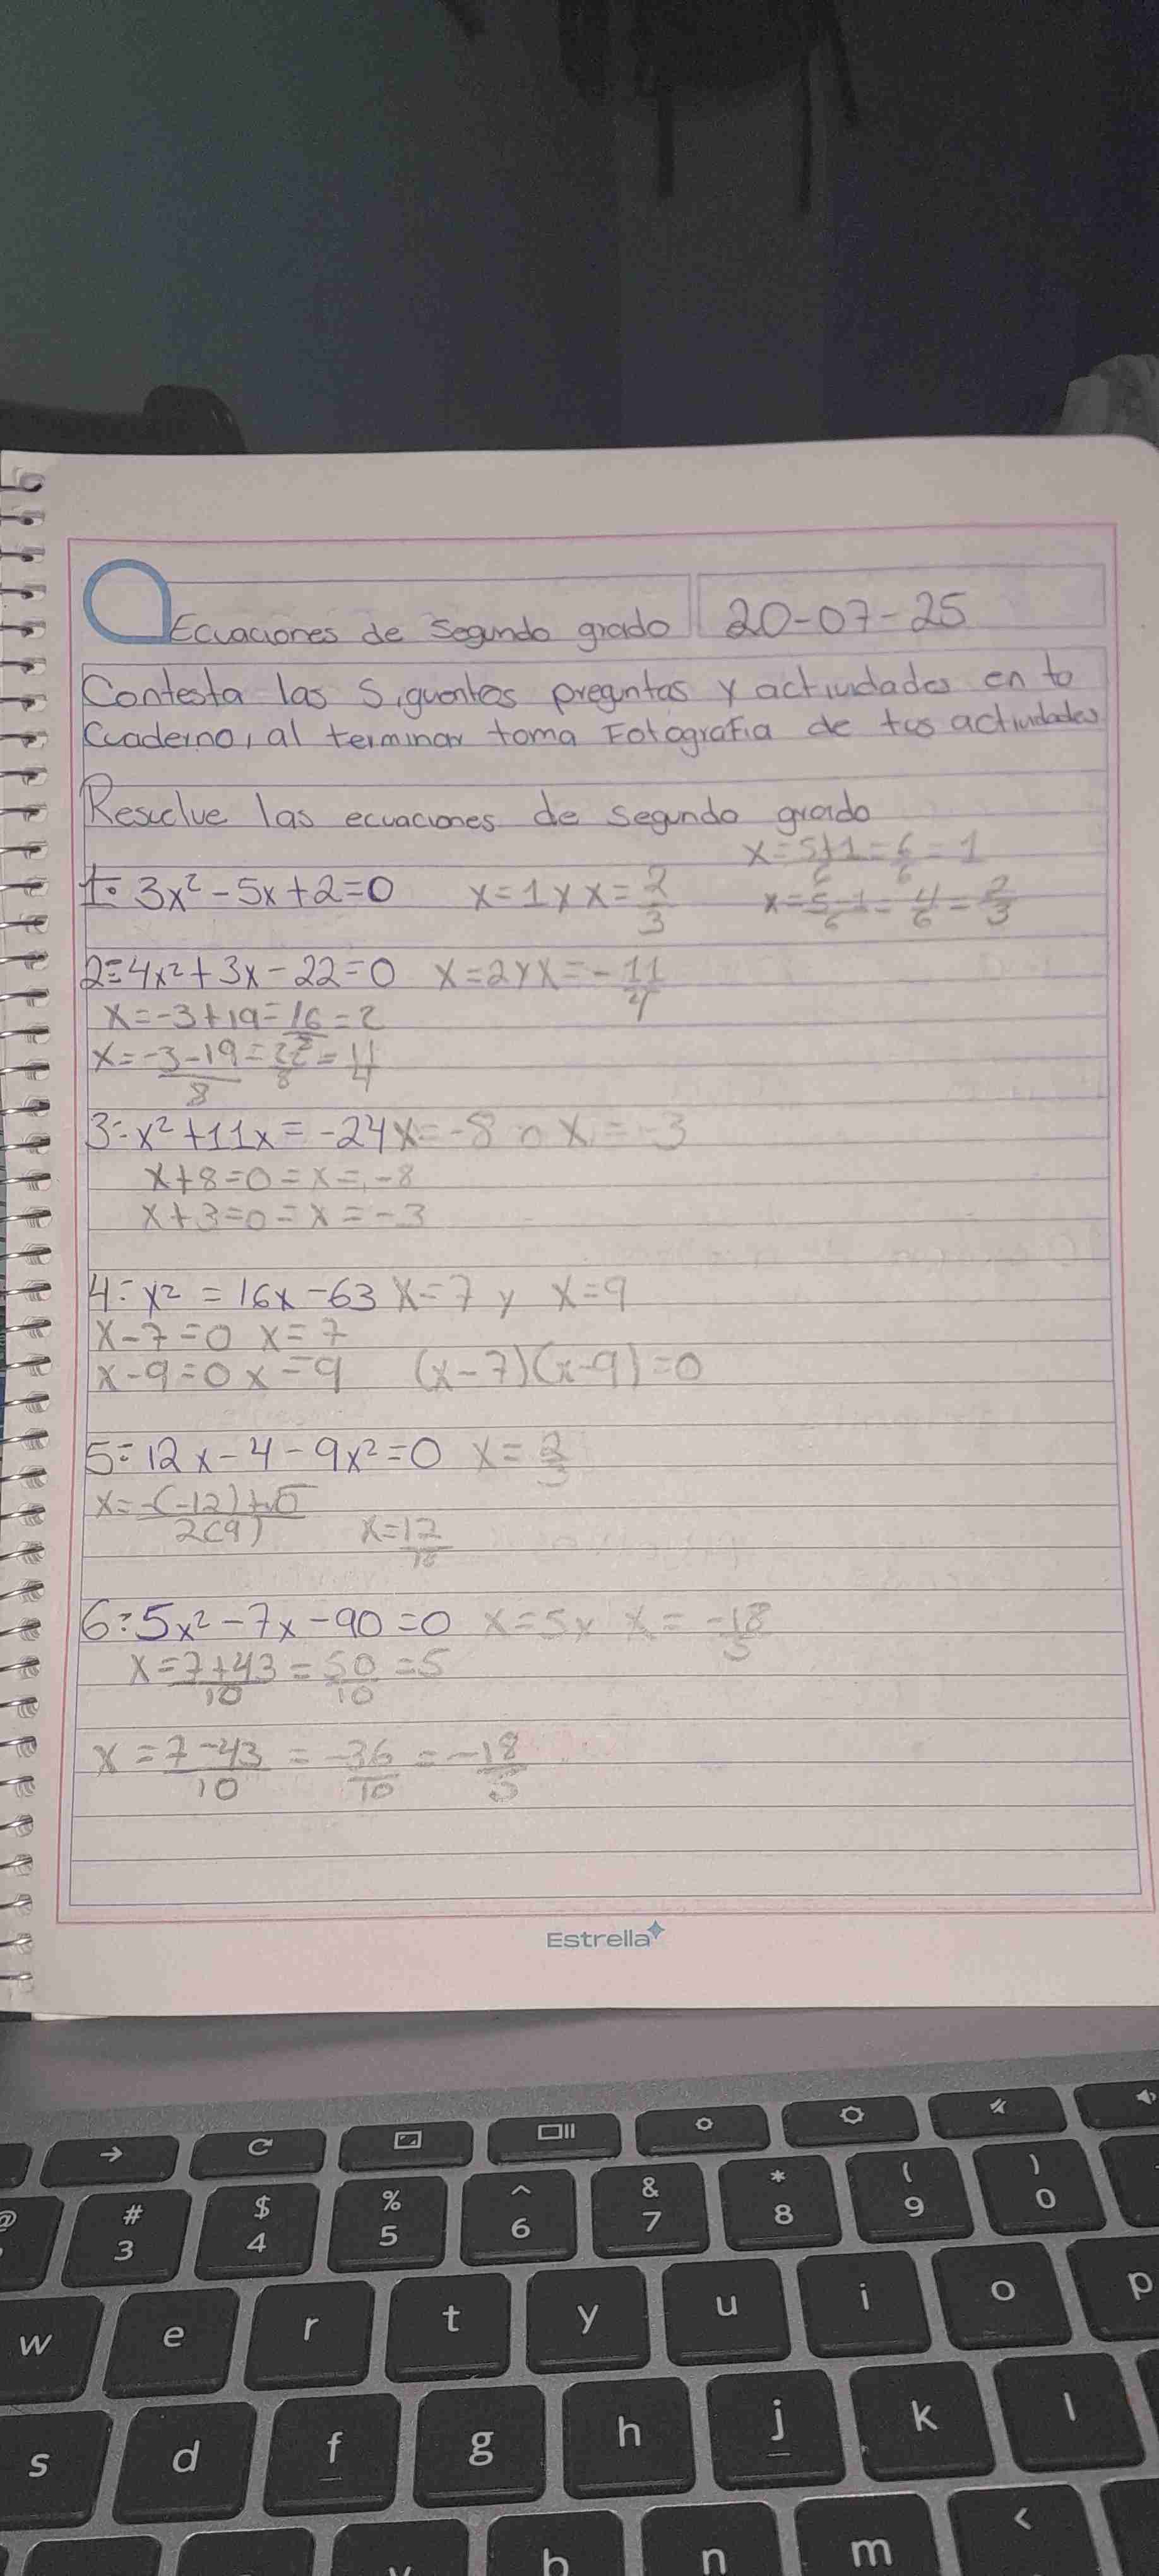 Ecuaciones de Segundo grado 20-07-25
Contesta las Siguentes preguntas y actiudades en to
Cuaderno, al terminar toma Fotografia de tus actiudades
Resuelve las ecuaciones de segundo grado
x=5+1/6=6/6=1
1- 3x²-5x+2=0 x=1 y x=2/3 x=5-1/6=4/6=2/3
2-4x²+3x-22=0 x=2 y x=-11/4
x=-3+19=16/8=2
x=-3-19/8=22/8=11/4
3-x²+11x=-24 x=-8 o x=-3
x+8=0=x=-8
x+3=0=x=-3
4-x²=16x-63 x=7 y x=9
x-7=0 x=7
x-9=0 x=9 (x-7)(x-9)=0
5-12x-4-9x²=0 x=2/3
x=-(-12)+√0/2(9) x=12/18
6-5x²-7x-90=0 x=5 y x=-18/5
x=7+43/10=50/10=5
x=7-43/10=-36/10=-18/5
Estrella
→
@ # 3 $ 4 % 5 ^ 6 & 7 * 8 ( 9 ) 0
w e r t y u i o p
s d f g h j k l
v b n m <